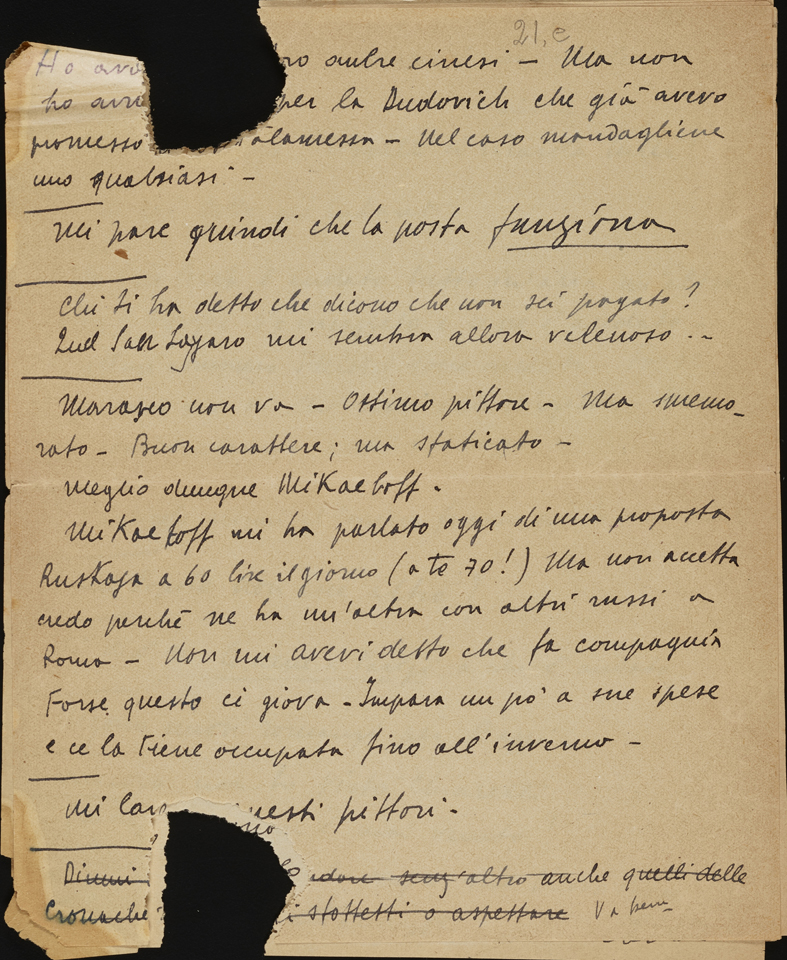 21, e
Ho avu tro anche cinesi – Ma non
ho avu per la Dudovich che già avevo
promesso – Nel caso mandagliene
uno qualsiasi –
Mi pare quindi che la posta funziona
Chi ti ha detto che dicono che non sei pagato?
Quel San Lazzaro mi sembra allora velenoso . –
Marasco non va – Ottimo pittore – Ma smemo_
rato – Buon carattere; ma staticato –
Meglio dunque Mikaeloff.
Mikaeloff mi ha parlato oggi di una proposta
Ruskaja a 60 lire il giorno (a te 70!) Ma non accetta
credo perché ne ha un'altra con altri russi a
Roma – Non mi avevi detto che fa compagnia
Forse questo ci giova – Impara un pò a sue spese
e ce la tiene occupata fino all'inverno –
Mi uesti pittori.
Dimmi dare senz'altro anche quelli delle
Cronache i stottetti o aspettare Va bene